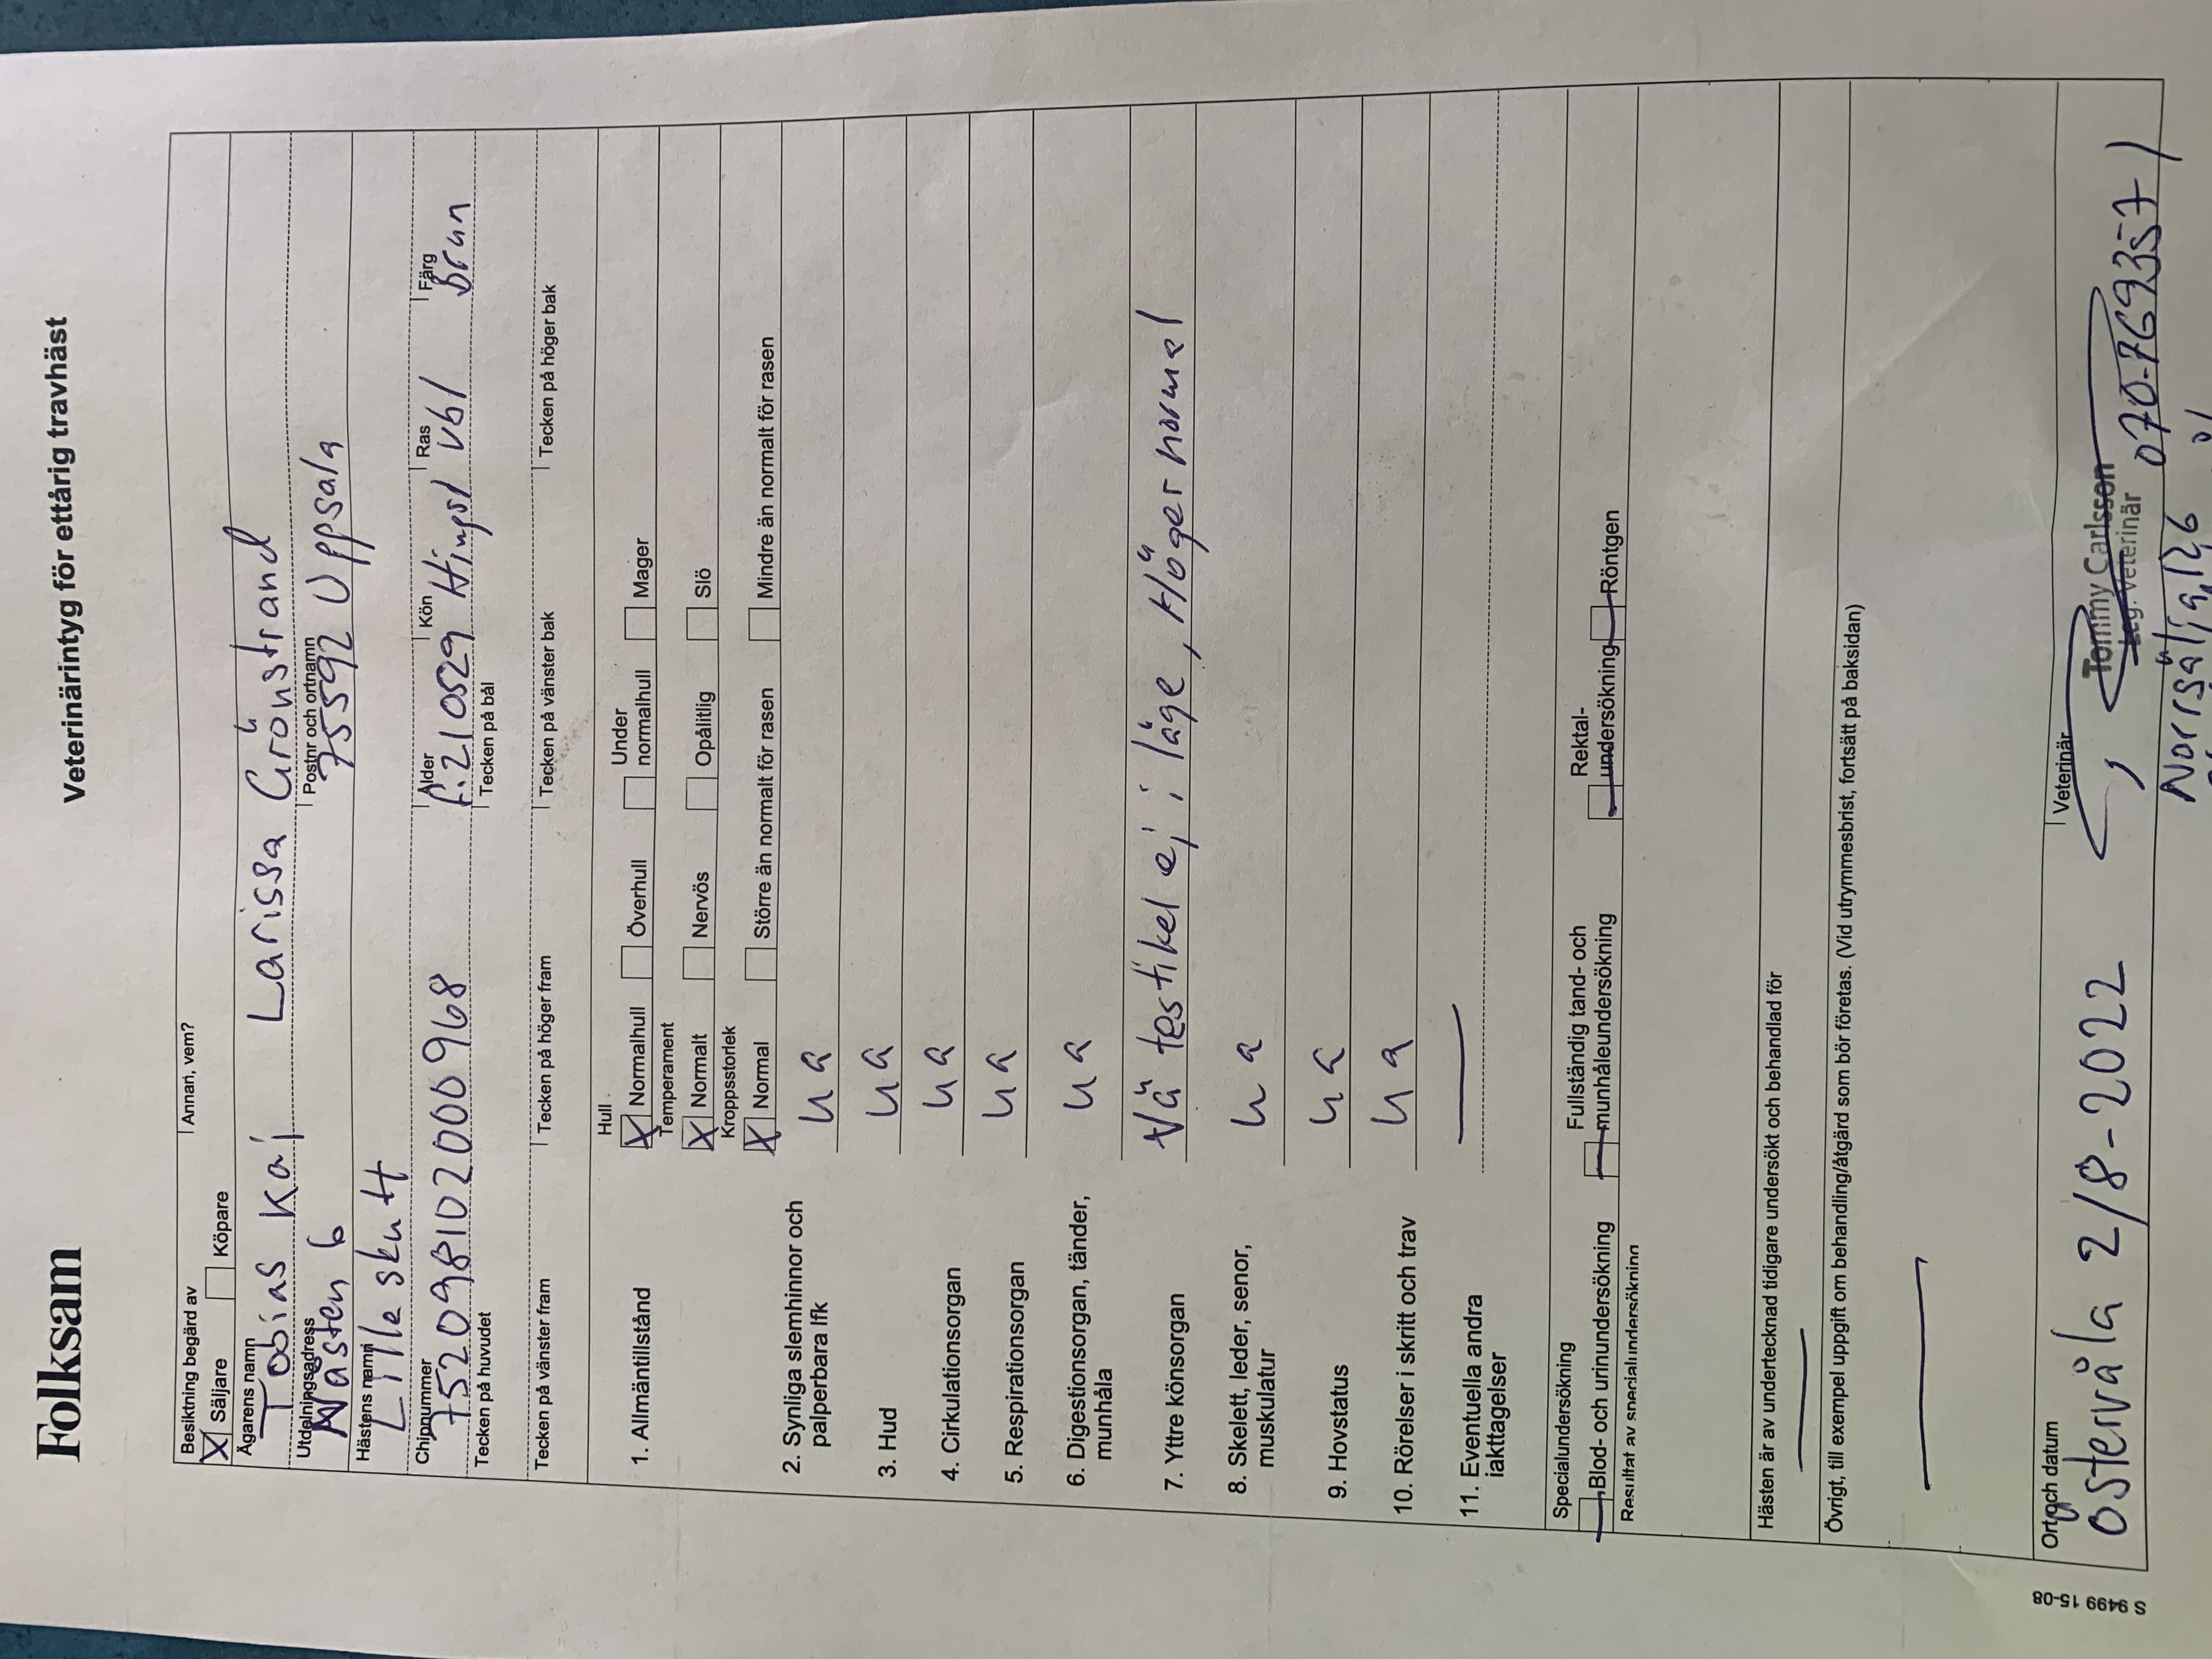 Folksam
Veterinärintyg för ettårig travhäst
Besiktning begärd av
Annan, vem?
X Säljare
Köpare
Ägarens namn
Tobias Kaj Larissa Grönstrand
Utdelningsadress
Postnr och ortnamn
Nåsten 6
75592 Uppsala
Hästens namn
Lille skutt
Chipnummer
Ålder
Kön
Ras
Färg
752098102000968
f.210529
Hingst
vbl
brun
Tecken på huvudet
Tecken på bål
Tecken på vänster fram
Tecken på höger fram
Tecken på vänster bak
Tecken på höger bak
1. Allmäntillstånd
Hull
X Normalhull
Överhull
Under normalhull
Mager
Temperament
X Normalt
Nervös
Opålitlig
Slö
Kroppsstorlek
X Normal
Större än normalt för rasen
Mindre än normalt för rasen
2. Synliga slemhinnor och
palperbara lfk
ua
3. Hud
ua
4. Cirkulationsorgan
ua
5. Respirationsorgan
ua
6. Digestionsorgan, tänder,
munhåla
ua
7. Yttre könsorgan
Vä testikel ej i läge, Höger normal
8. Skelett, leder, senor,
muskulatur
ua
9. Hovstatus
ua
10. Rörelser i skritt och trav
ua
11. Eventuella andra
iakttagelser
Specialundersökning
Blod- och urinundersökning
Fullständig tand- och
munhåleundersökning
Rektal-
undersökning
Röntgen
Resultat av specialundersökning
Hästen är av undertecknad tidigare undersökt och behandlad för
Övrigt, till exempel uppgift om behandling/åtgärd som bör företas. (Vid utrymmesbrist, fortsätt på baksidan)
Ort och datum
Veterinär
Östervåla 2/8-2022
Tommy Carlsson
Leg. Veterinär
070-7693571
S 9499 15-08